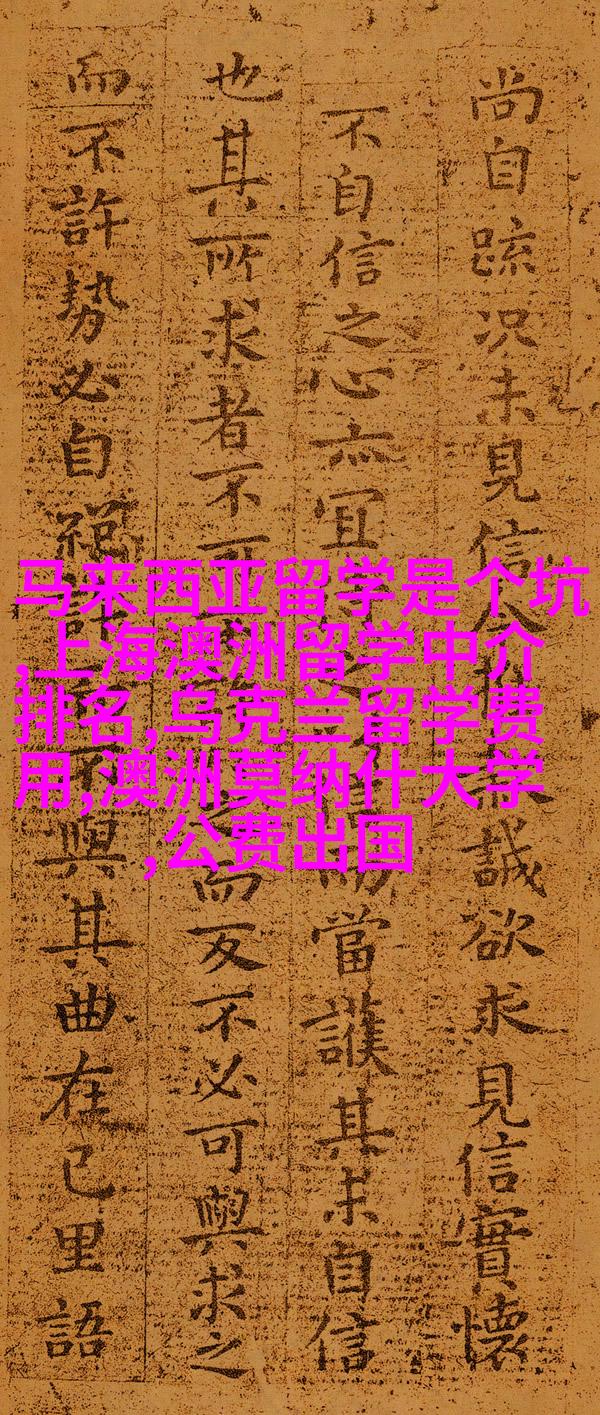 尚自踈况未見信誠欲求見信實懷
不自信之心亦宜當護其未自信
也其所求者不而反不必可與求之
而不許勢必自絕許不與其曲在己里語
马来西亚留学是个坑
,上海澳洲留学中介
排名,乌克兰留学费
用,澳洲莫纳什大学
,公费出国